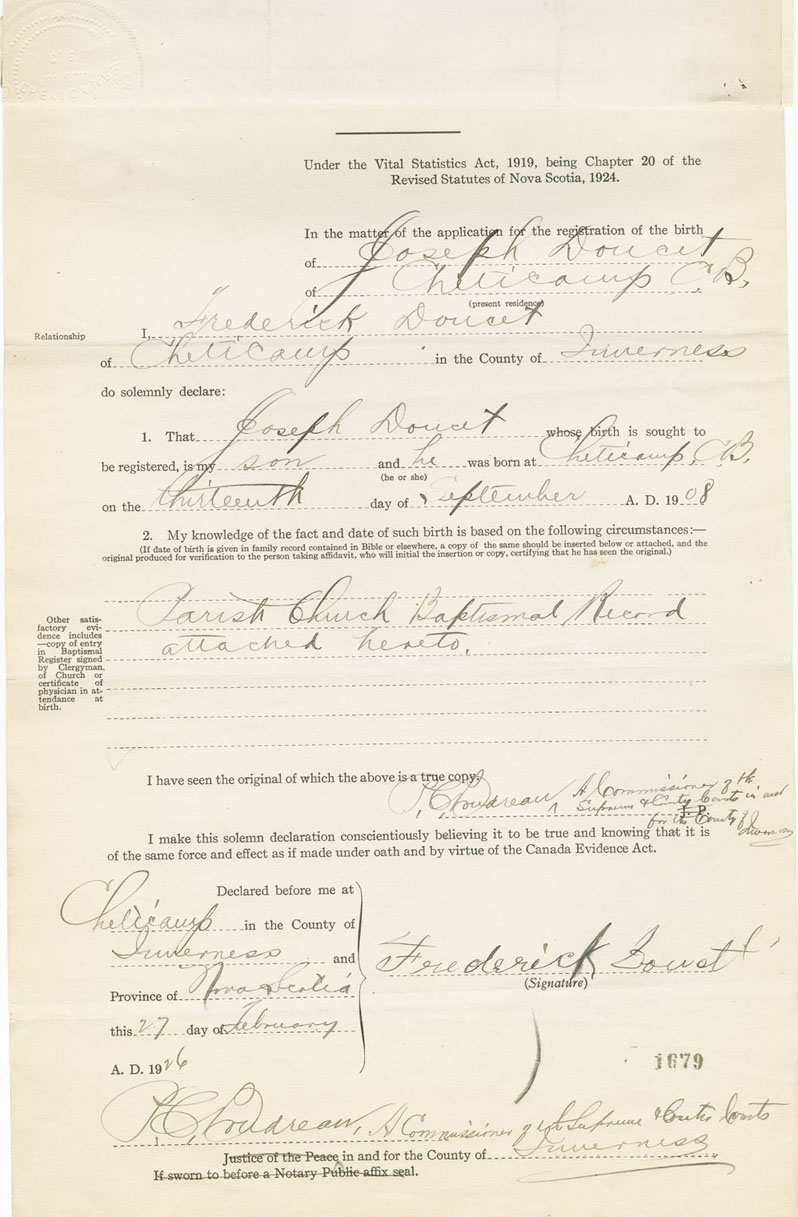 Under the Vital Statistics Act, 1919, being Chapter 20 of the
Revised Statutes of Nova Scotia, 1924.
In the matter of the application for the registration of the birth
of Joseph Doucet
of Cheticamp C.B.
(present residence)
Relationship
I, Frederick Doucet
of Cheticamp in the County of Inverness
do solemnly declare:
1. That Joseph Doucet whose birth is sought to
be registered, is my son and he was born at Cheticamp, C.B.
(he or she)
on the thirteenth day of September A. D. 1908
2. My knowledge of the fact and date of such birth is based on the following circumstances:—
(If date of birth is given in family record contained in Bible or elsewhere, a copy of the same should be inserted below or attached, and the
original produced for verification to the person taking affidavit, who will initial the insertion or copy, certifying that he has seen the original.)
Other satis-
factory evi-
dence includes
—copy of entry
in Baptismal
Register signed
by Clergyman,
of Church or
certificate of
physician in at-
tendance at
birth.
Parish Church Baptismal Record
attached hereto.
I have seen the original of which the above is a true copy.
P. C. Boudreau, A Commissioner of the
Supreme & County Courts in and
J. P.
for the County of Inverness
I make this solemn declaration conscientiously believing it to be true and knowing that it is
of the same force and effect as if made under oath and by virtue of the Canada Evidence Act.
Declared before me at
Cheticamp in the County of
Inverness and
Province of Nova Scotia
this 27 day of February
A. D. 1926
Frederick Doucet
(Signature)
1679
P. C. Boudreau, A Commissioner of the Supreme & County Courts
Justice of the Peace in and for the County of Inverness
If sworn to before a Notary Public affix seal.